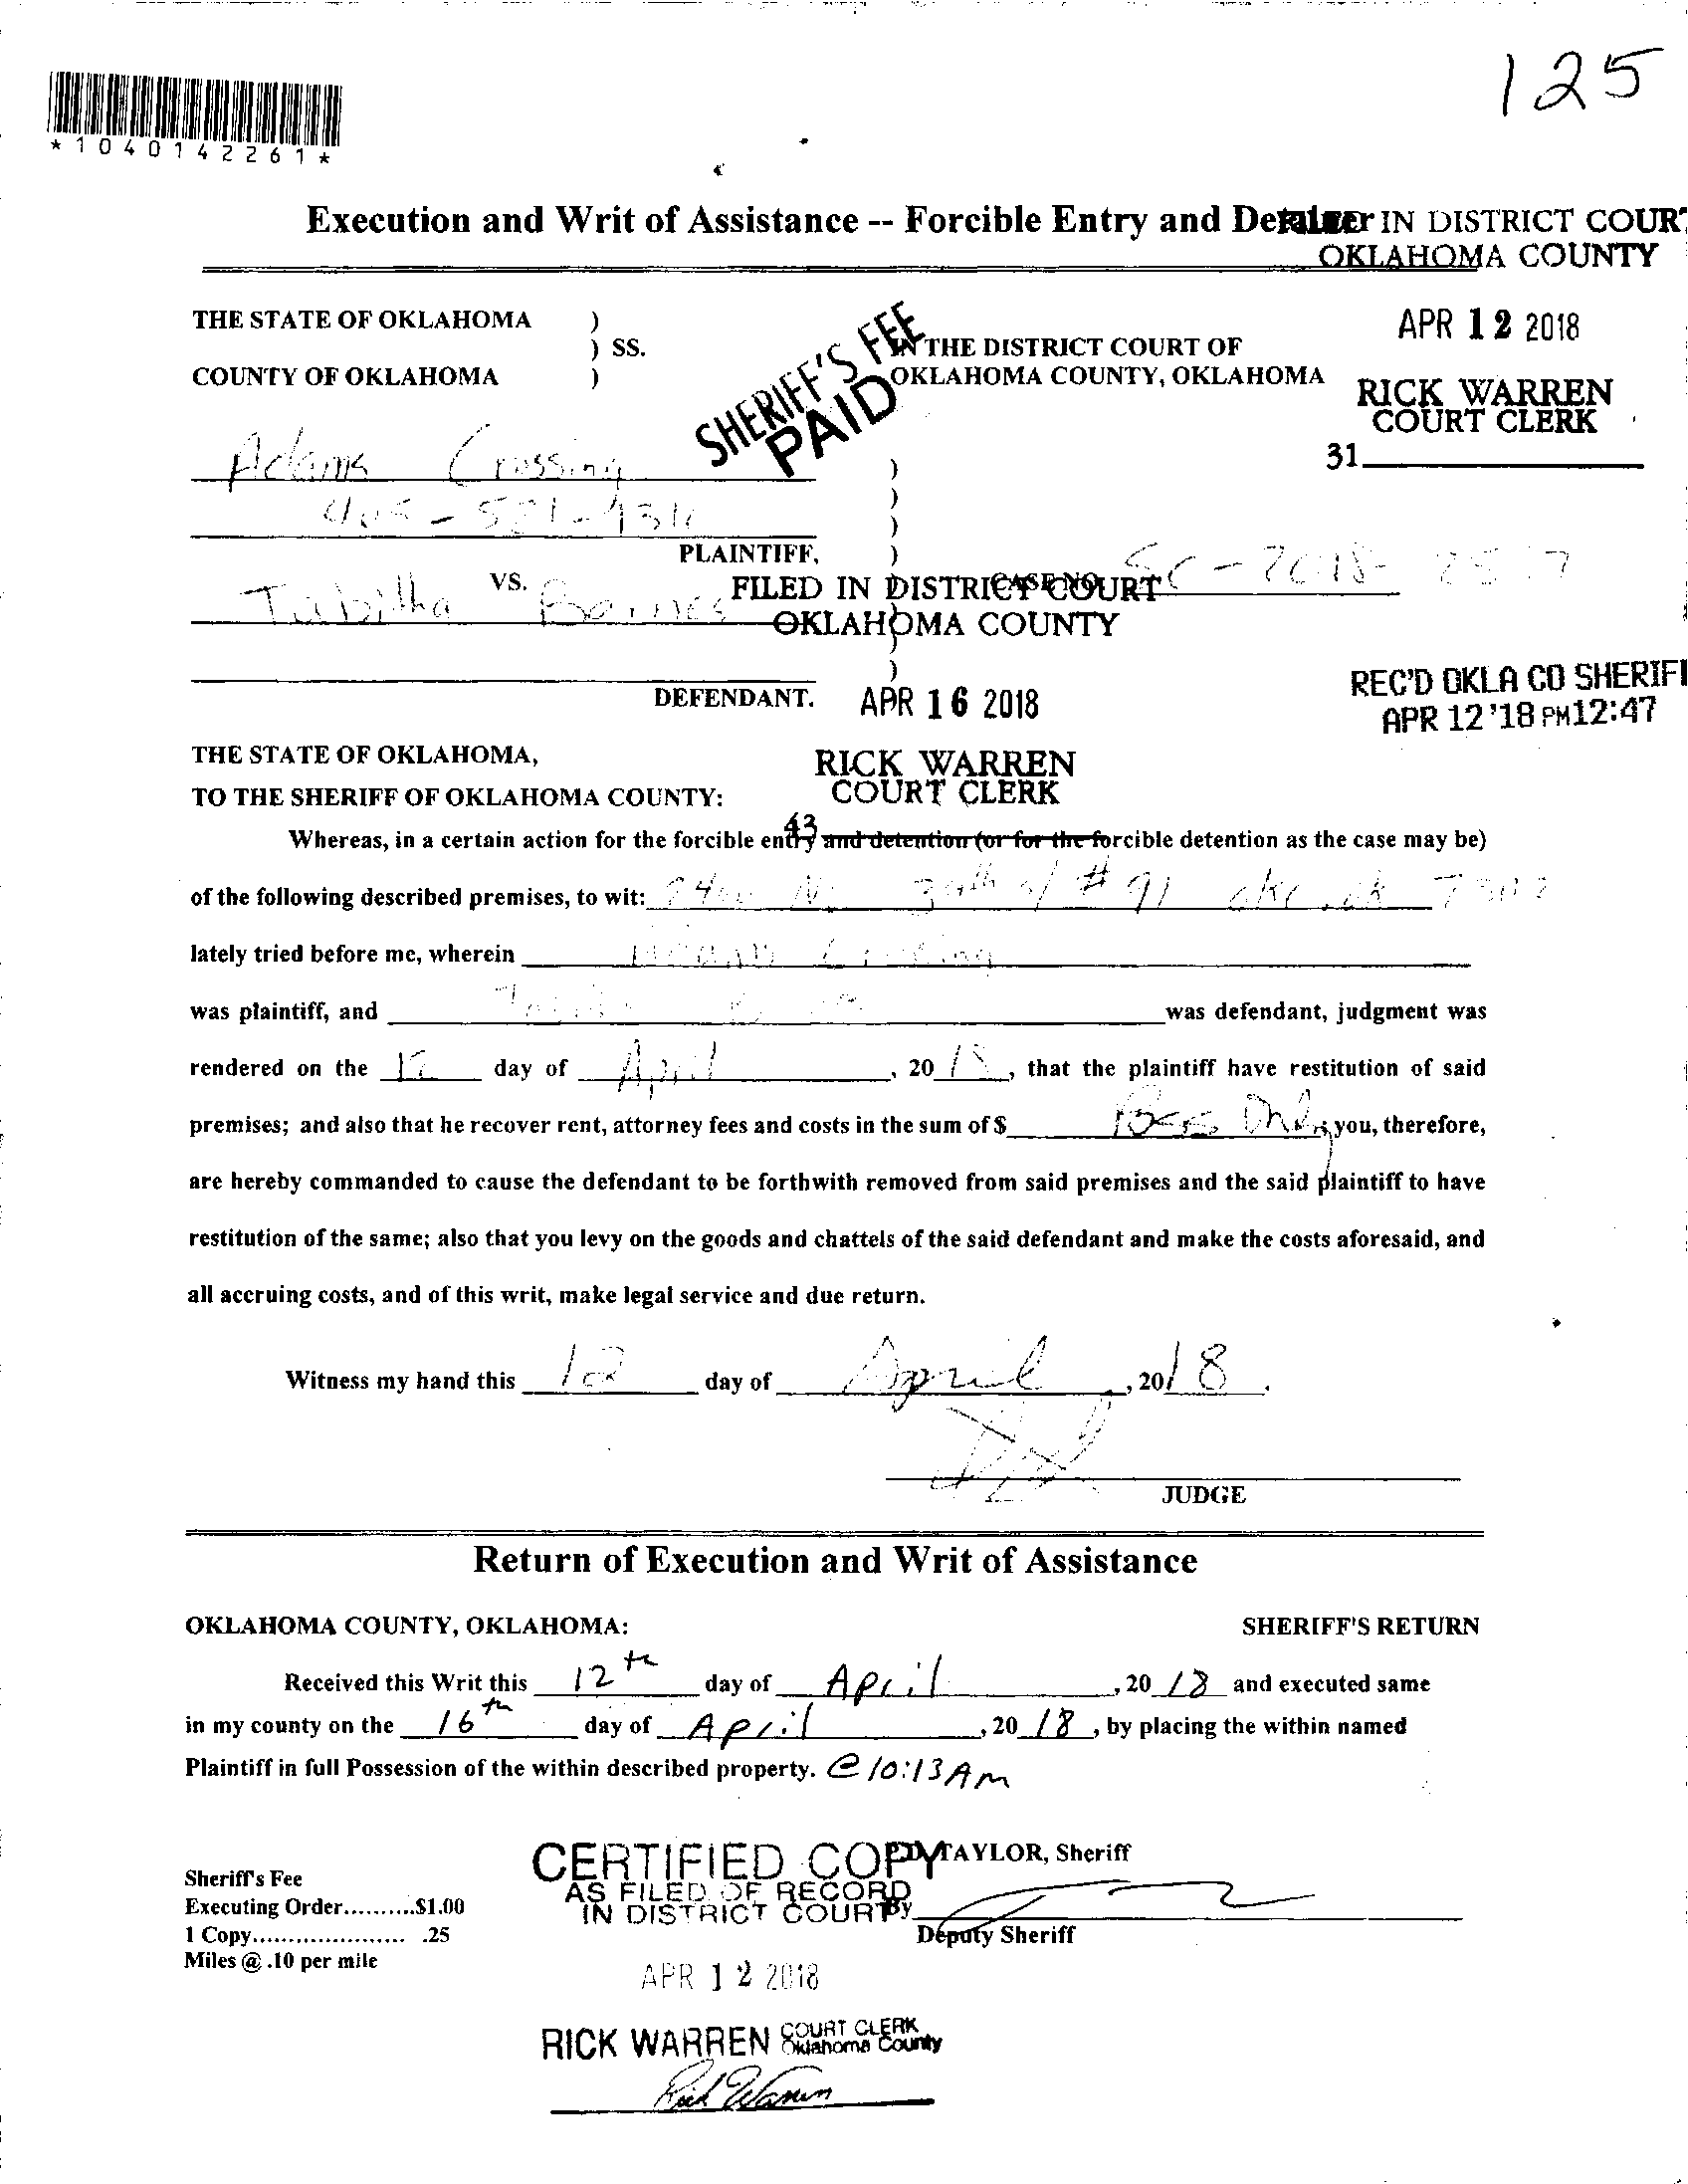 125
*1040142261*
Execution and Writ of Assistance -- Forcible Entry and Detainer
FILED IN DISTRICT COURT
OKLAHOMA COUNTY
APR 12 2018
RICK WARREN
COURT CLERK
31
THE STATE OF OKLAHOMA )
) SS.
COUNTY OF OKLAHOMA )
SHERIFF'S FEE
PAID
IN THE DISTRICT COURT OF
OKLAHOMA COUNTY, OKLAHOMA
Adams Crossing )
)
)
PLAINTIFF, )
VS. CASE NO. SC-2018-
Tabitha Baines
)
)
DEFENDANT.
FILED IN DISTRICT COURT
OKLAHOMA COUNTY
APR 16 2018
RICK WARREN
COURT CLERK
43
REC'D OKLA CO SHERIF
APR 12 '18 PM12:47
THE STATE OF OKLAHOMA,
TO THE SHERIFF OF OKLAHOMA COUNTY:
Whereas, in a certain action for the forcible entry and detention (or for the forcible detention as the case may be)
of the following described premises, to wit: # 91 okc, ok
lately tried before me, wherein Adams Crossing
was plaintiff, and was defendant, judgment was
rendered on the 12 day of April, 2018, that the plaintiff have restitution of said
premises; and also that he recover rent, attorney fees and costs in the sum of $ Poss Only; you, therefore,
are hereby commanded to cause the defendant to be forthwith removed from said premises and the said plaintiff to have
restitution of the same; also that you levy on the goods and chattels of the said defendant and make the costs aforesaid, and
all accruing costs, and of this writ, make legal service and due return.
Witness my hand this 12 day of April, 2018.
JUDGE
Return of Execution and Writ of Assistance
OKLAHOMA COUNTY, OKLAHOMA: SHERIFF'S RETURN
Received this Writ this 12th day of April, 2018 and executed same
in my county on the 16th day of April, 2018, by placing the within named
Plaintiff in full Possession of the within described property. @ 10:13 Am
TAYLOR, Sheriff
Sheriff's Fee
Executing Order..........$1.00
1 Copy..................... .25
Miles @ .10 per mile
By
Deputy Sheriff
CERTIFIED COPY
AS FILED OF RECORD
IN DISTRICT COURT
APR 12 2018
RICK WARREN COURT CLERK
Oklahoma County
Rick Warren